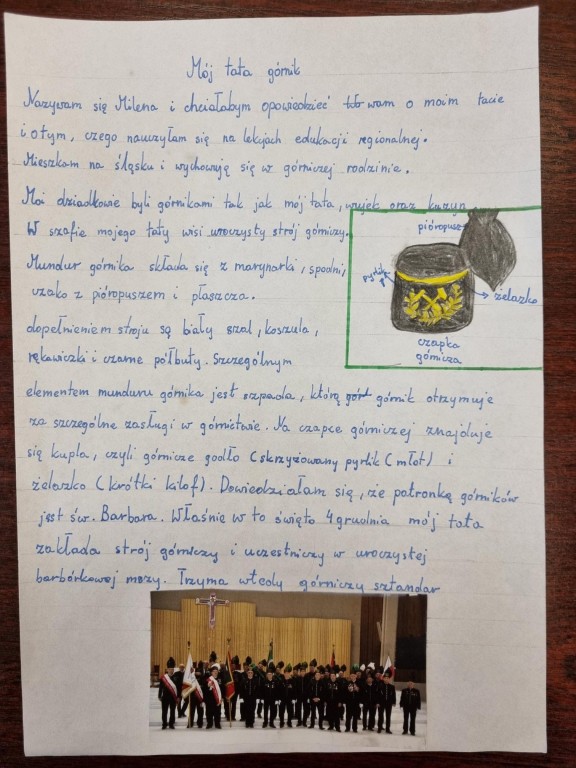 Mój tata górnik
Nazywam się Milena i chciałabym opowiedzieć wam o moim tacie
i o tym, czego nauczyłam się na lekcjach edukacji regionalnej.
Mieszkam na śląsku i wychowuję się w górniczej rodzinie.
Moi dziadkowie byli górnikami tak jak mój tata, wujek oraz kuzyn.
W szafie mojego taty wisi uroczysty strój górniczy.
Mundur górnika składa się z marynarki, spodni,
czako z pióropuszem i płaszcza.
dopełnieniem stroju są biały szal, koszula,
rękawiczki i czarne półbuty. Szczególnym
elementem munduru górnika jest szpada, którą górnik otrzymuje
za szczególne zasługi w górnictwie. Na czapce górniczej znajduje
się kupla, czyli górnicze godło (skrzyżowany pyrlik (młot) i
żelazko (krótki kilof). Dowiedziałam się, że patronką górników
jest św. Barbara. Właśnie w to święto 4 grudnia mój tata
zakłada strój górniczy i uczestniczy w uroczystej
barbórkowej mszy. Trzyma wtedy górniczy sztandar
pióropusz
pyrlik
żelazko
czapka
górnicza